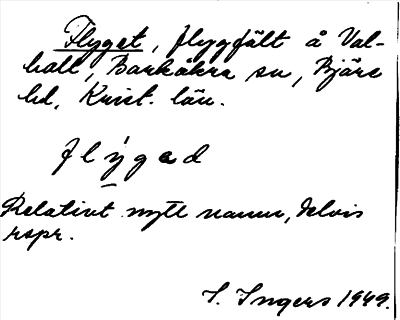 Flyget, flygfält å Val-
hall, Barkåkra sn, Bjäre
hd, Krist. län.
flýgəd
Relativt nytt namn, delvis
rspr.
I. Ingers 1949.